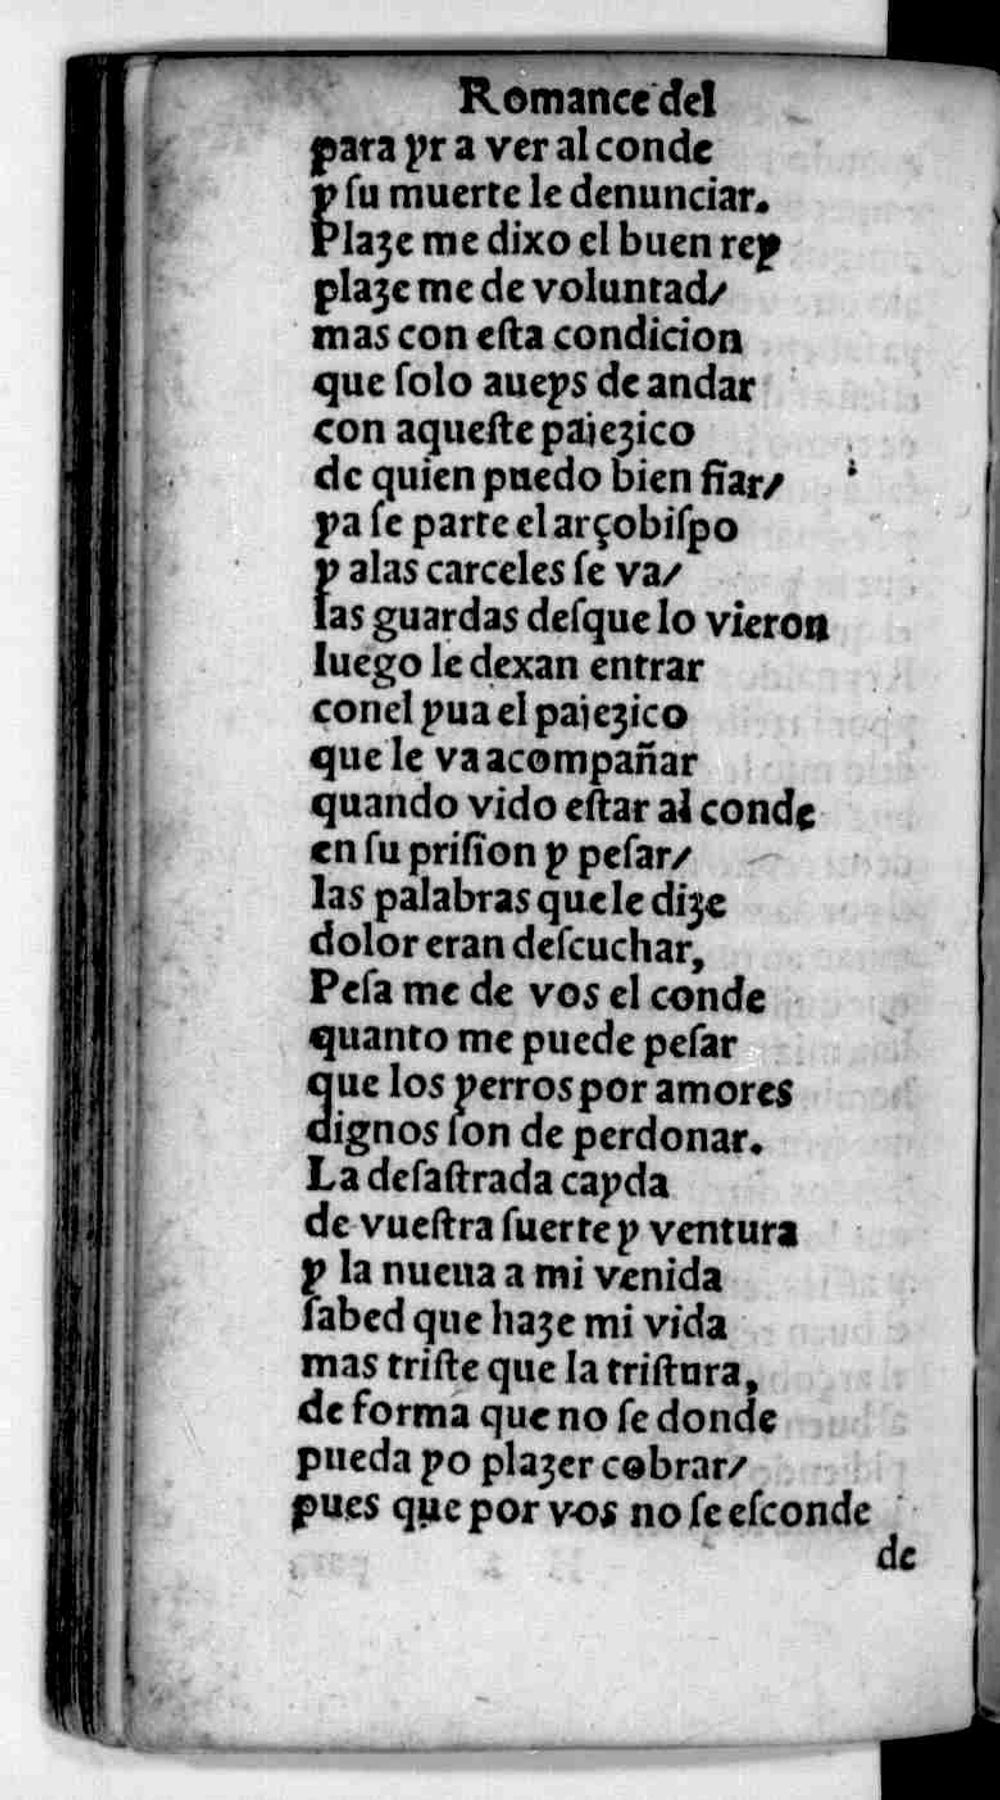 Romance del
para yr a ver al conde
y ſu muerte le denunciar.
Plaze me dixo el buen rey
plaze me de voluntad/
mas con eſta condicion
que ſolo aueys de andar
con aqueſte pajezico
de quien puedo bien fiar/
ya ſe parte el arçobiſpo
y alas carceles ſe va/
las guardas deſque lo vieron
luego le dexan entrar
conel yua el pajezico
que le va acompañar
quando vido eſtar al conde
en ſu priſion y peſar/
las palabras que le dize
dolor eran deſcuchar,
Peſa me de vos el conde
quanto me puede peſar
que los yerros por amores
dignos ſon de perdonar.
La deſaſtrada cayda
de vueſtra ſuerte y ventura
y la nueua a mi venida
ſabed que haze mi vida
mas triſte que la triſtura,
de forma que no ſe donde
pueda yo plazer cobrar/
pues que por vos no ſe eſconde
de